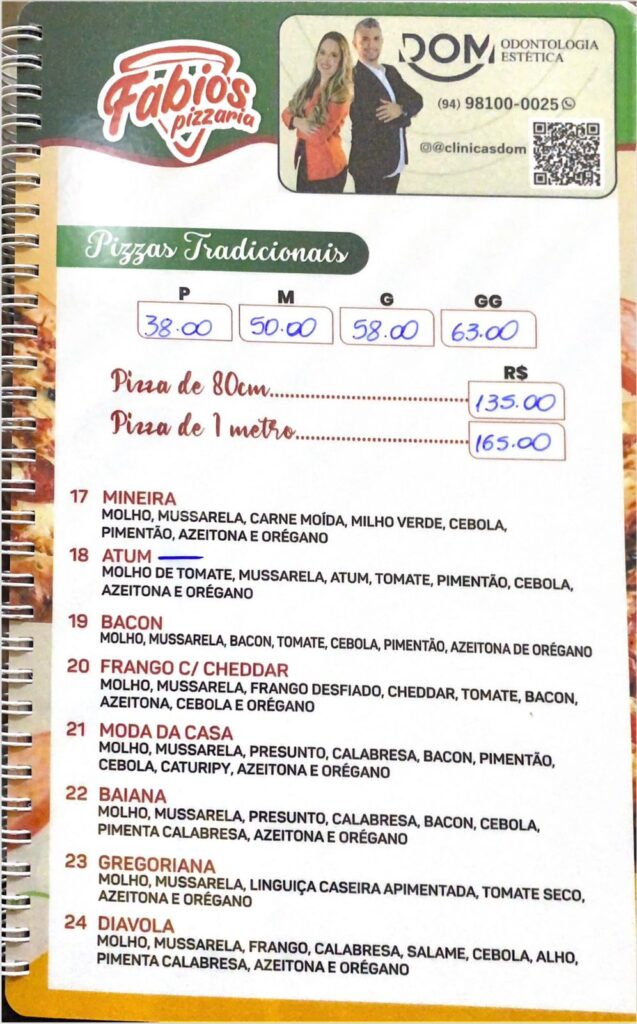 Fabio's
pizzaria
DOM ODONTOLOGIA
ESTÉTICA
(94) 98100-0025
@clinicasdom
Pizzas Tradicionais
P M G GG
38.00 50.00 58.00 63.00
R$
Pizza de 80cm 135.00
Pizza de 1 metro 165.00
17 MINEIRA
MOLHO, MUSSARELA, CARNE MOÍDA, MILHO VERDE, CEBOLA,
PIMENTÃO, AZEITONA E ORÉGANO
18 ATUM
MOLHO DE TOMATE, MUSSARELA, ATUM, TOMATE, PIMENTÃO, CEBOLA,
AZEITONA E ORÉGANO
19 BACON
MOLHO, MUSSARELA, BACON, TOMATE, CEBOLA, PIMENTÃO, AZEITONA DE ORÉGANO
20 FRANGO C/ CHEDDAR
MOLHO, MUSSARELA, FRANGO DESFIADO, CHEDDAR, TOMATE, BACON,
AZEITONA, CEBOLA E ORÉGANO
21 MODA DA CASA
MOLHO, MUSSARELA, PRESUNTO, CALABRESA, BACON, PIMENTÃO,
CEBOLA, CATURIPY, AZEITONA E ORÉGANO
22 BAIANA
MOLHO, MUSSARELA, PRESUNTO, CALABRESA, BACON, CEBOLA,
PIMENTA CALABRESA, AZEITONA E ORÉGANO
23 GREGORIANA
MOLHO, MUSSARELA, LINGUIÇA CASEIRA APIMENTADA, TOMATE SECO,
AZEITONA E ORÉGANO
24 DIAVOLA
MOLHO, MUSSARELA, FRANGO, CALABRESA, SALAME, CEBOLA, ALHO,
PIMENTA CALABRESA, AZEITONA E ORÉGANO